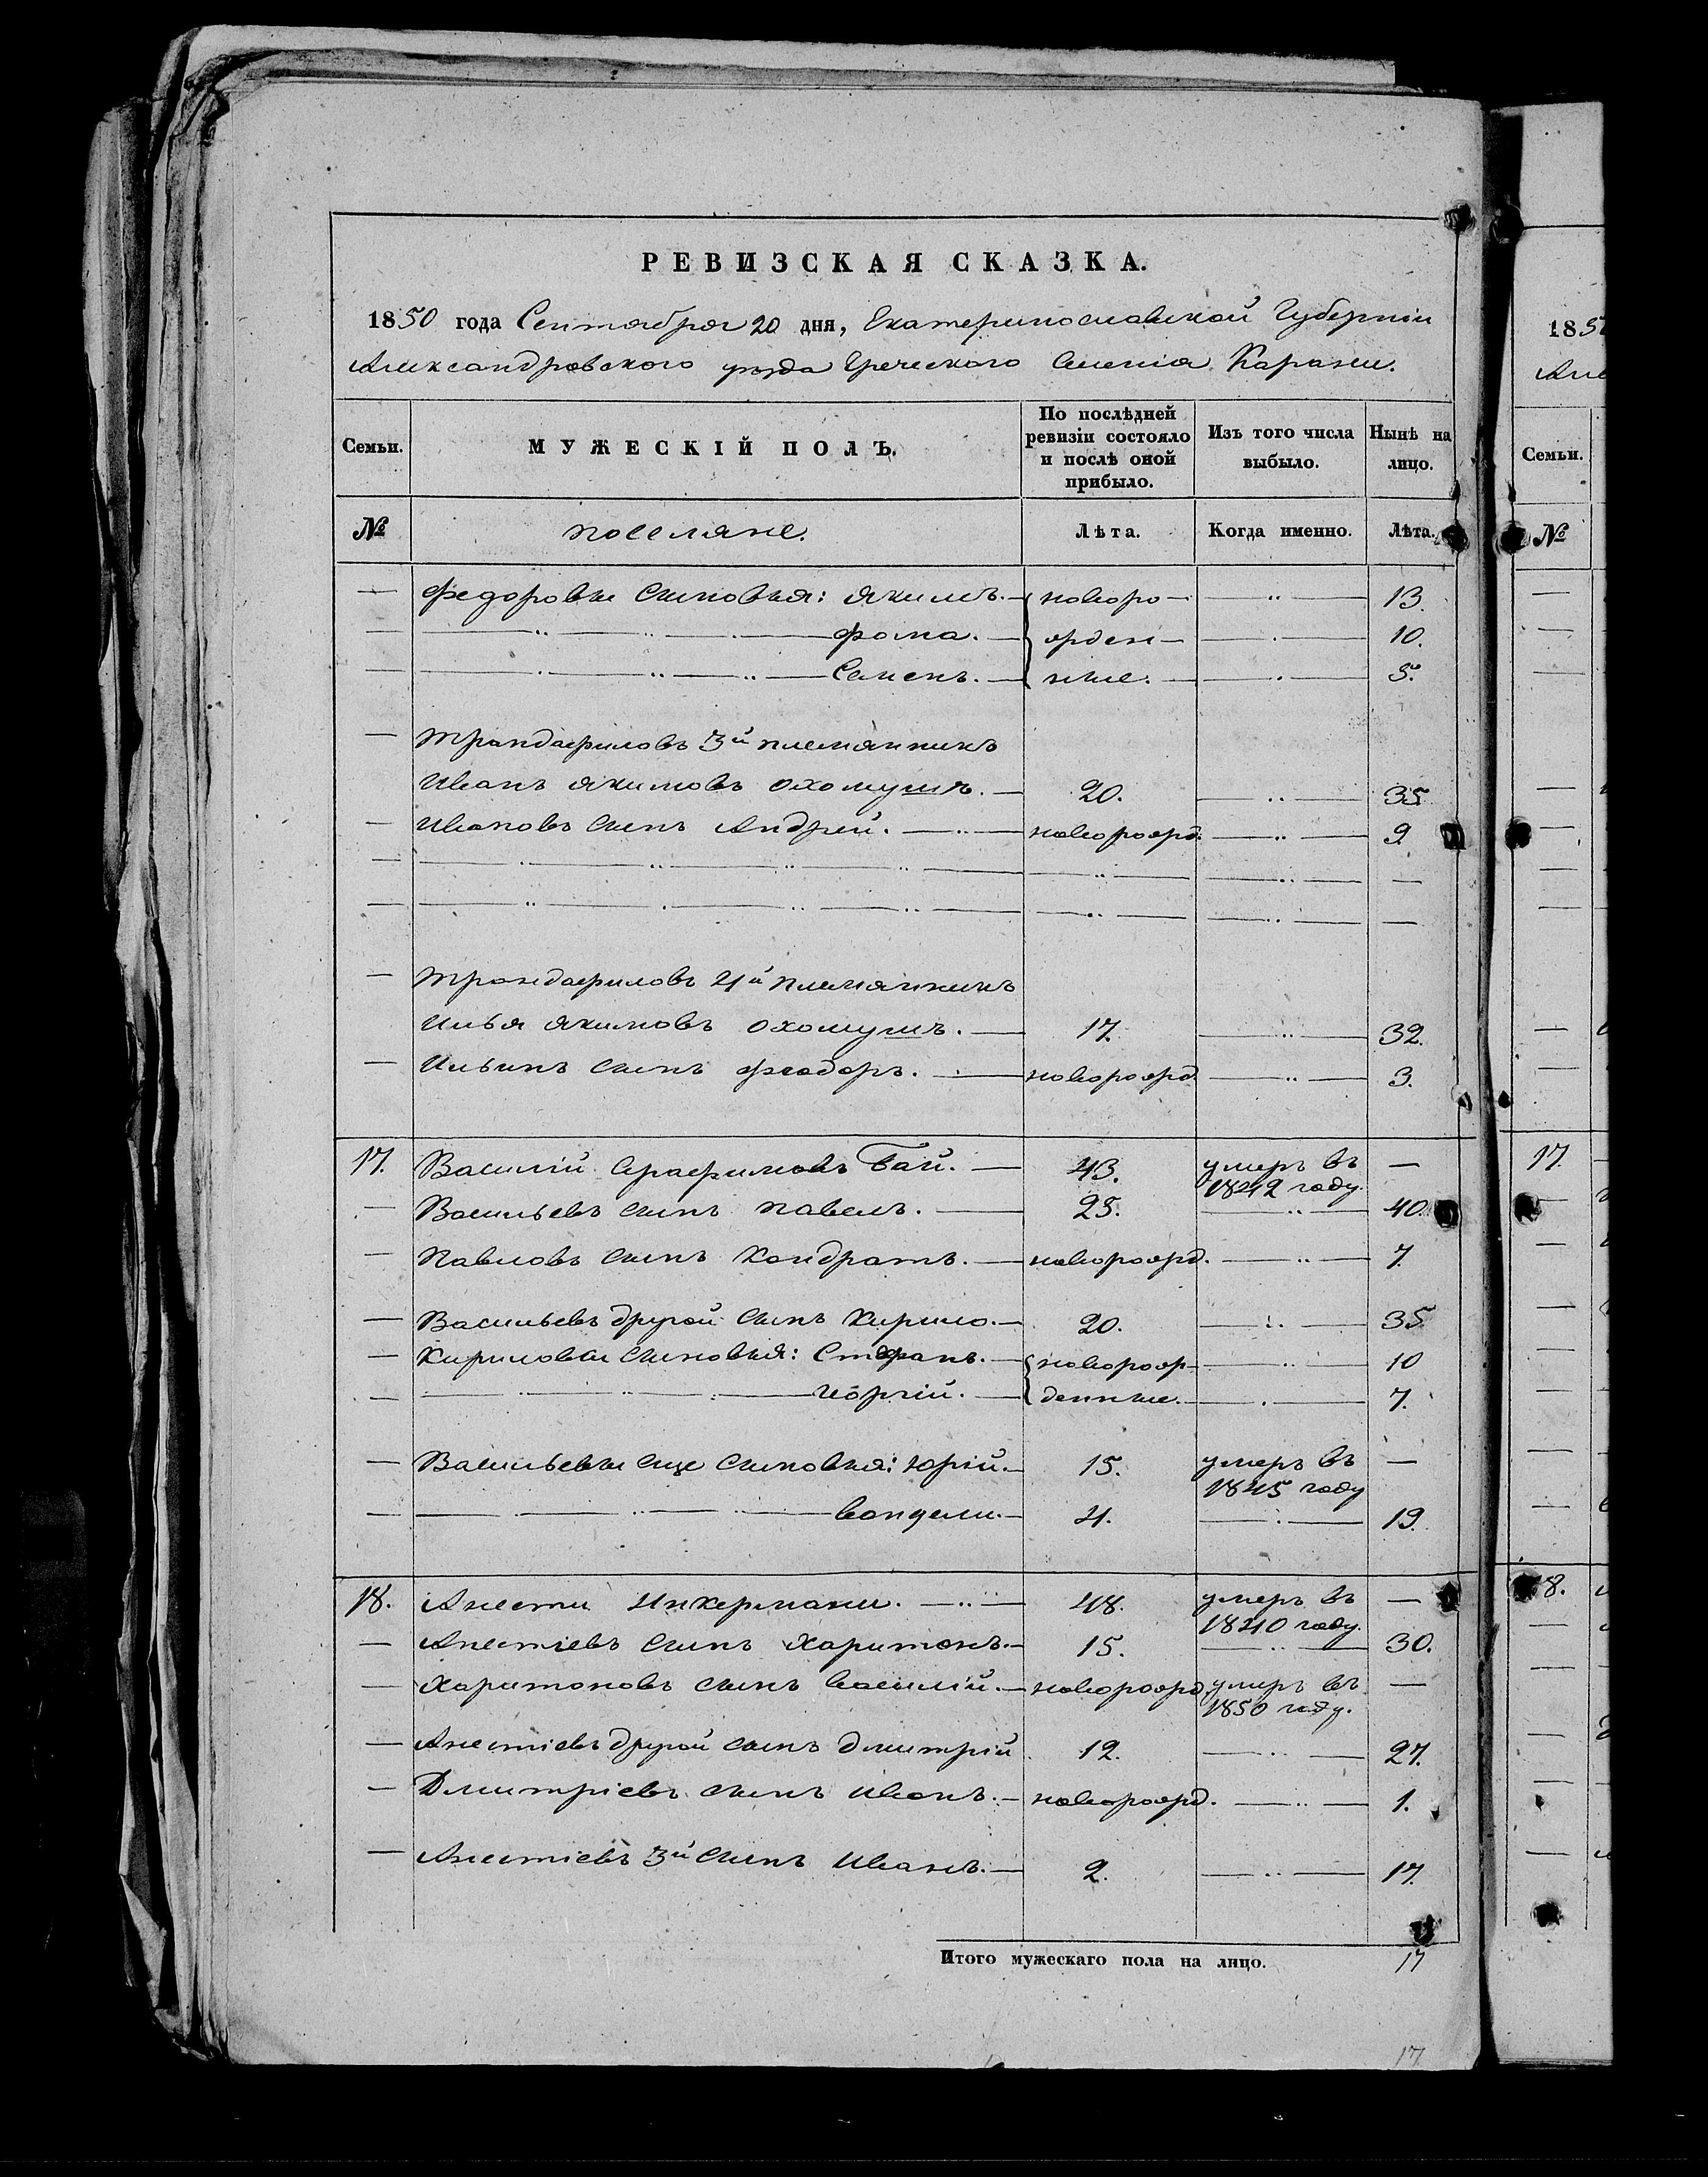 РЕВИЗСКАЯ СКАЗКА.
1850 года Сентября 20 дня, Екатеринославской Губерніи
Александровскаго уѣзда Греческаго Селенія Карани.
Семьи. МУЖЕСКІЙ ПОЛЪ. По послѣдней ревизіи состояло и послѣ оной прибыло. Изъ того числа выбыло. Нынѣ на лицо.
№ поселяне. Лѣта. Когда именно. Лѣта.
— Федоровы сыновья: Якимъ. — новоро- — 13.
— Фома. — жден- — 10.
— Семенъ. — ные. — 5.
— Трандафиловъ 3й племянникъ
Иванъ Якимовъ Охомушъ. — 20. — 35
— Ивановъ сынъ Андрей. — новорожд. — 9
— Трандафиловъ 4й племянникъ
Илья Якимовъ Охомушъ. — 17. — 32.
— Ильинъ сынъ Феодоръ. — новорожд — 3.
17. Василій Серафимовъ Бай. — 43. умеръ въ 1842 году. —
— Васильевъ сынъ Павелъ. — 25. — 40.
— Павловъ сынъ Кондратъ. — новорожд. — 7
— Васильевъ другой сынъ Кирило. — 20. — 35
— Кириловы сыновья: Стефанъ. — новорож- — 10
— Георгій. — денные. — 7.
— Васильевы еще сыновья: Юрій. — 15. умеръ въ 1845 году —
— Вандели. — 4. — 19.
18. Анести Инкермани. — 48. умеръ въ 1840 году. —
— Анестіевъ сынъ Харитонъ. — 15. — 30.
— Харитоновъ сынъ Василій. — новорожд. умеръ въ 1850 году. —
— Анестіевъ другой сынъ Дмитрій 12. — 27.
— Дмитріевъ сынъ Иванъ. — новорожд. — 1.
— Анестіевъ 3й сынъ Иванъ. — 2. — 17.
Итого мужескаго пола на лицо. 17
17
185
Але
Семьи.
№
17.
18.